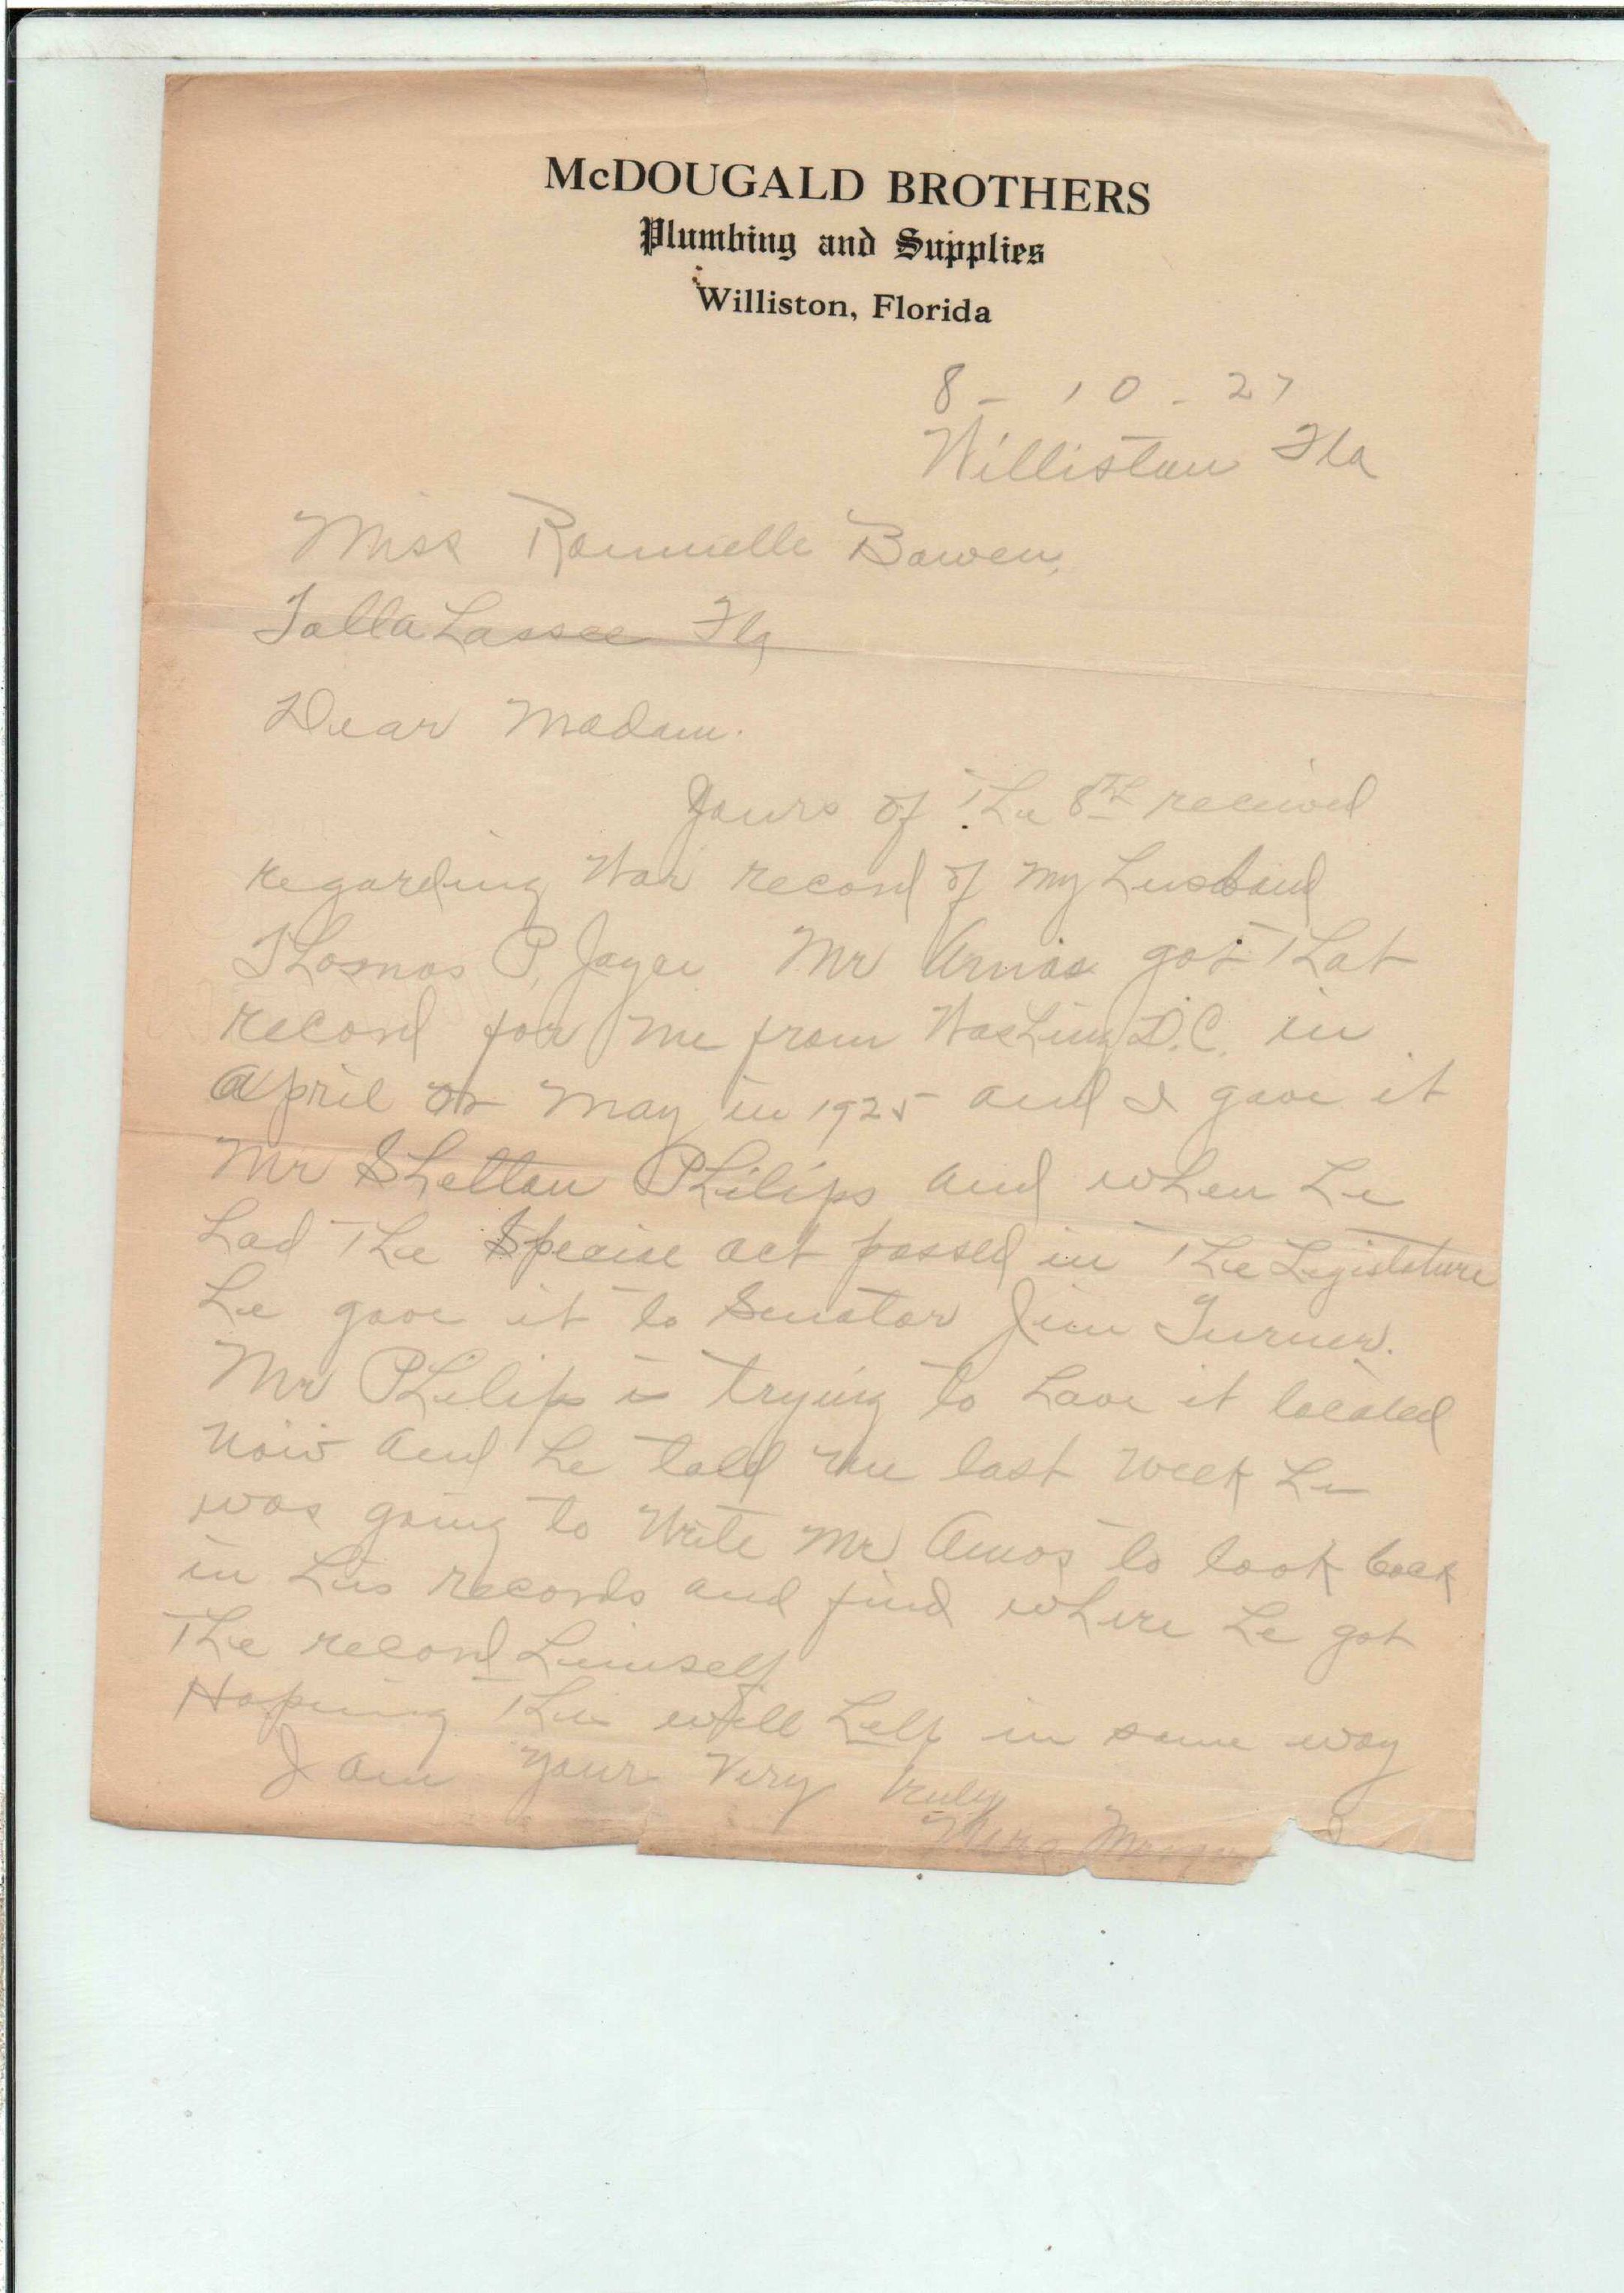 McDOUGALD BROTHERS
Plumbing and Supplies
Williston, Florida
8 - 10 - 27
Williston Fla
Miss Bowen,
Tallahassee Fla
Dear Madam.
Yours of the 8th received
regarding War record of my husband
Thomas P. Mr got that
record for me from Washing D.C. in
April or May in 1925 and I gave it
Mr Shelton Philips and when he
had the act passed in the Legislature
he gave it to Senator Jim Turner.
Mr Philips is trying to have it located
now and he told me last week he
was going to write Mr Amos to look back
in his records and find where he got
the record himself
Hoping this will help in some way
I am Yours Very truly